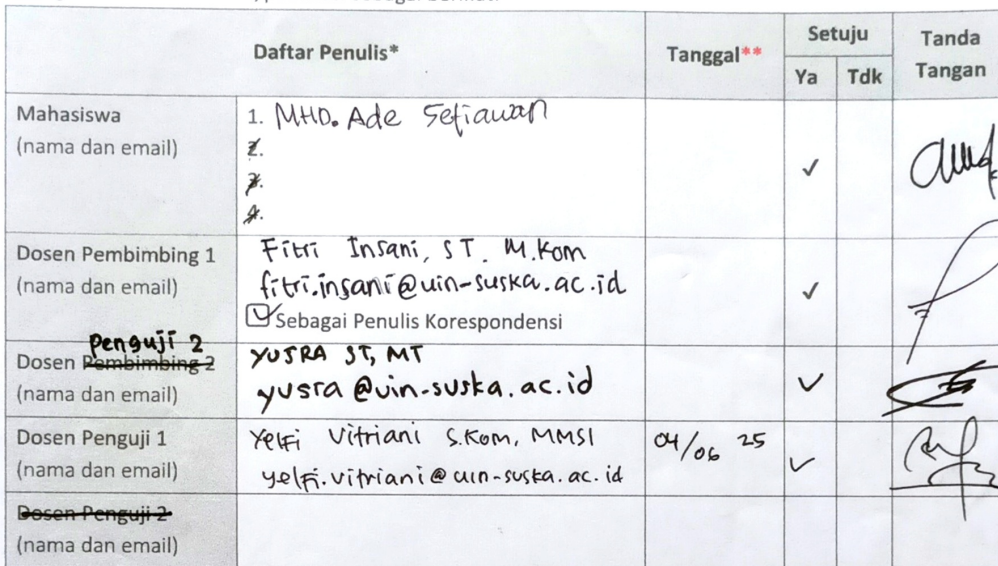 Daftar Penulis* Tanggal** Setuju Tanda Tangan
Ya Tdk
Mahasiswa
(nama dan email)
1. MHD. Ade Setiawan
2.
3.
4.
Dosen Pembimbing 1
(nama dan email)
Fitri Insani, ST. M.Kom
fitri.insani@uin-suska.ac.id
Sebagai Penulis Korespondensi
Penguji 2
Dosen Pembimbing 2
(nama dan email)
YUSRA ST, MT
yusra@uin-suska.ac.id
Dosen Penguji 1
(nama dan email)
Yelfi Vitriani S.Kom, MMSI
yelfi.vitriani@uin-suska.ac.id
04/06 25
Dosen Penguji 2
(nama dan email)